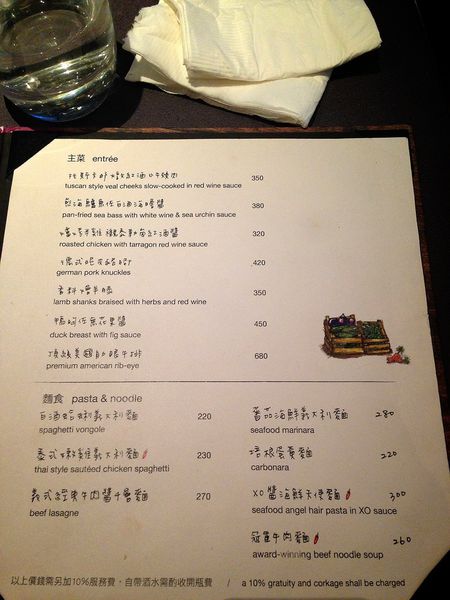 主菜 entrée
托斯卡尼燉紅酒小牛燒肉 350
tuscan style veal cheeks slow-cooked in red wine sauce
煎海鱸魚佐白酒海膽醬 380
pan-fried sea bass with white wine & sea urchin sauce
320
roasted chicken with tarragon red wine sauce
德式 420
german pork knuckles
香料燉羊膝 350
lamb shanks braised with herbs and red wine
鴨胸佐無花果醬 450
duck breast with fig sauce
頂級美國肋眼牛排 680
premium american rib-eye
麵食 pasta & noodle
白酒蛤蜊義大利麵 220
spaghetti vongole
泰式嫩雞義大利麵 230
thai style sautéed chicken spaghetti
義式經典牛肉醬千層麵 270
beef lasagne
蕃茄海鮮義大利麵 280
seafood marinara
培根蛋黃麵 220
carbonara
XO醬海鮮天使麵 300
seafood angel hair pasta in XO sauce
冠軍牛肉麵 260
award-winning beef noodle soup
以上價錢需另加10%服務費，自帶酒水需酌收開瓶費 / a 10% gratuity and corkage shall be charged